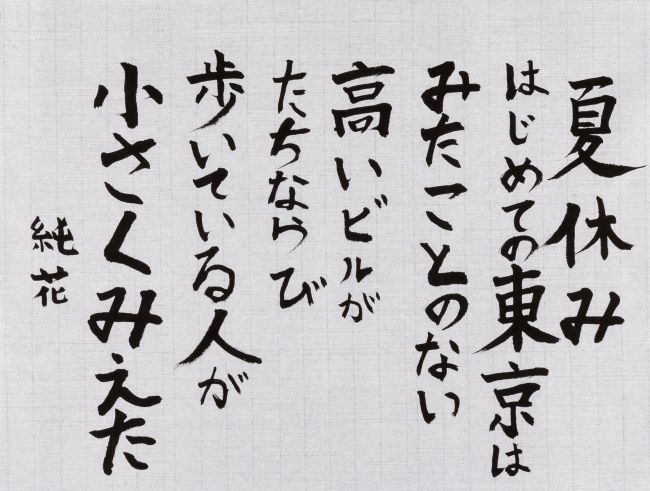 夏休み
はじめての東京は
みたことのない
高いビルが
たちならび
歩いている人が
小さくみえた
純花